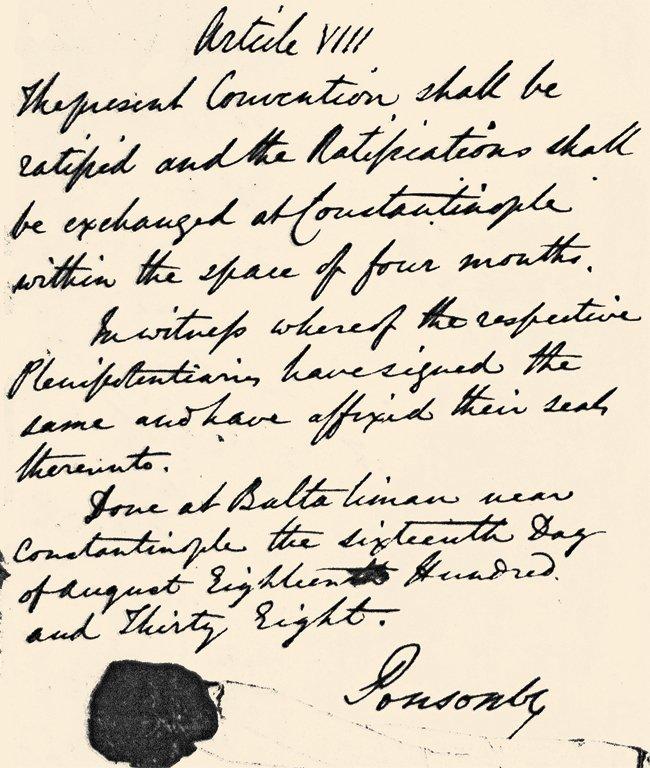 Article VIII
The present Convention shall be
ratified and the Ratifications shall
be exchanged at Constantinople
within the space of four months.
In witness whereof the respective
Plenipotentiaries have signed the
same and have affixed their seals
thereunto.
Done at Balta liman near
Constantinople the sixteenth Day
of August Eighteen Hundred
and Thirty Eight.
Ponsonby